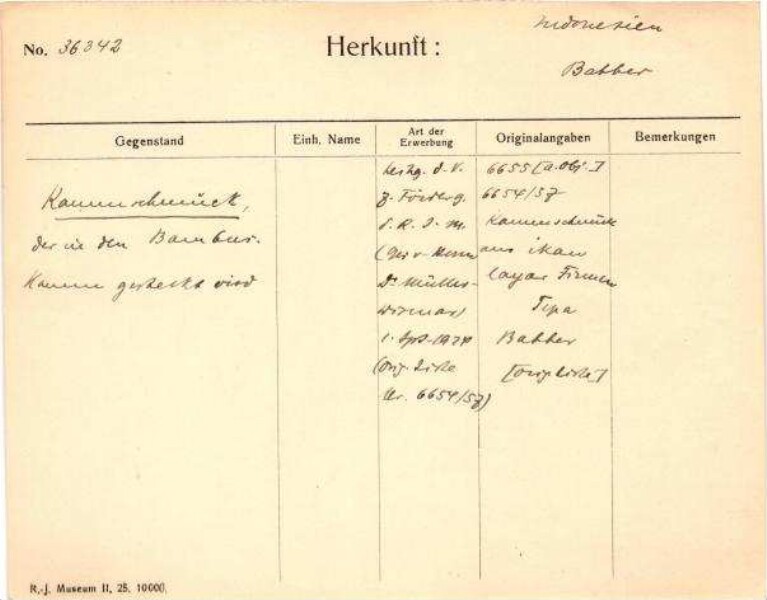 No. 36342
Herkunft:
Indonesien
Babber
Gegenstand
Einh. Name
Art der Erwerbung
Originalangaben
Bemerkungen
Kammschmuck,
der in den Bambus-
Kamm gesteckt wird
d. V.
z. Förderg.
d. R. J. M.
Dr Müller-
Wismar)
1. Spt. 1924
(Orig. Liste
Nr. 6654/57)
6655 [a. Obj.]
6654/57
Kammschmuck
aus ikan
layar
Tepa
Babber
[Orig. Liste]
R.-J. Museum II. 25. 10000.